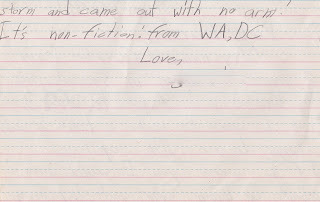 storm and came out with no arm!
It's non-fiction! from WA, DC
Love,